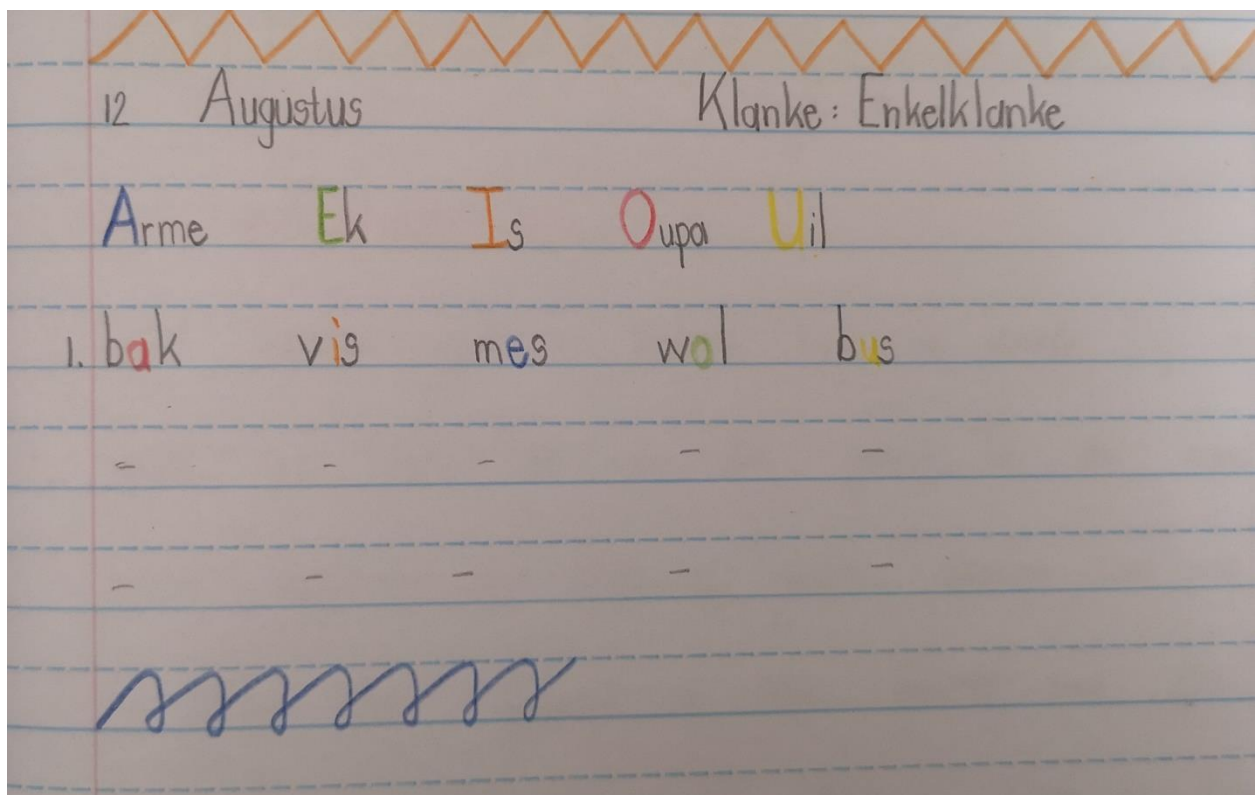 12 Augustus Klanke: Enkelklanke
Arme Ek Is Oupa Uil
1. bak vis mes wol bus
- - - - -
- - - - -